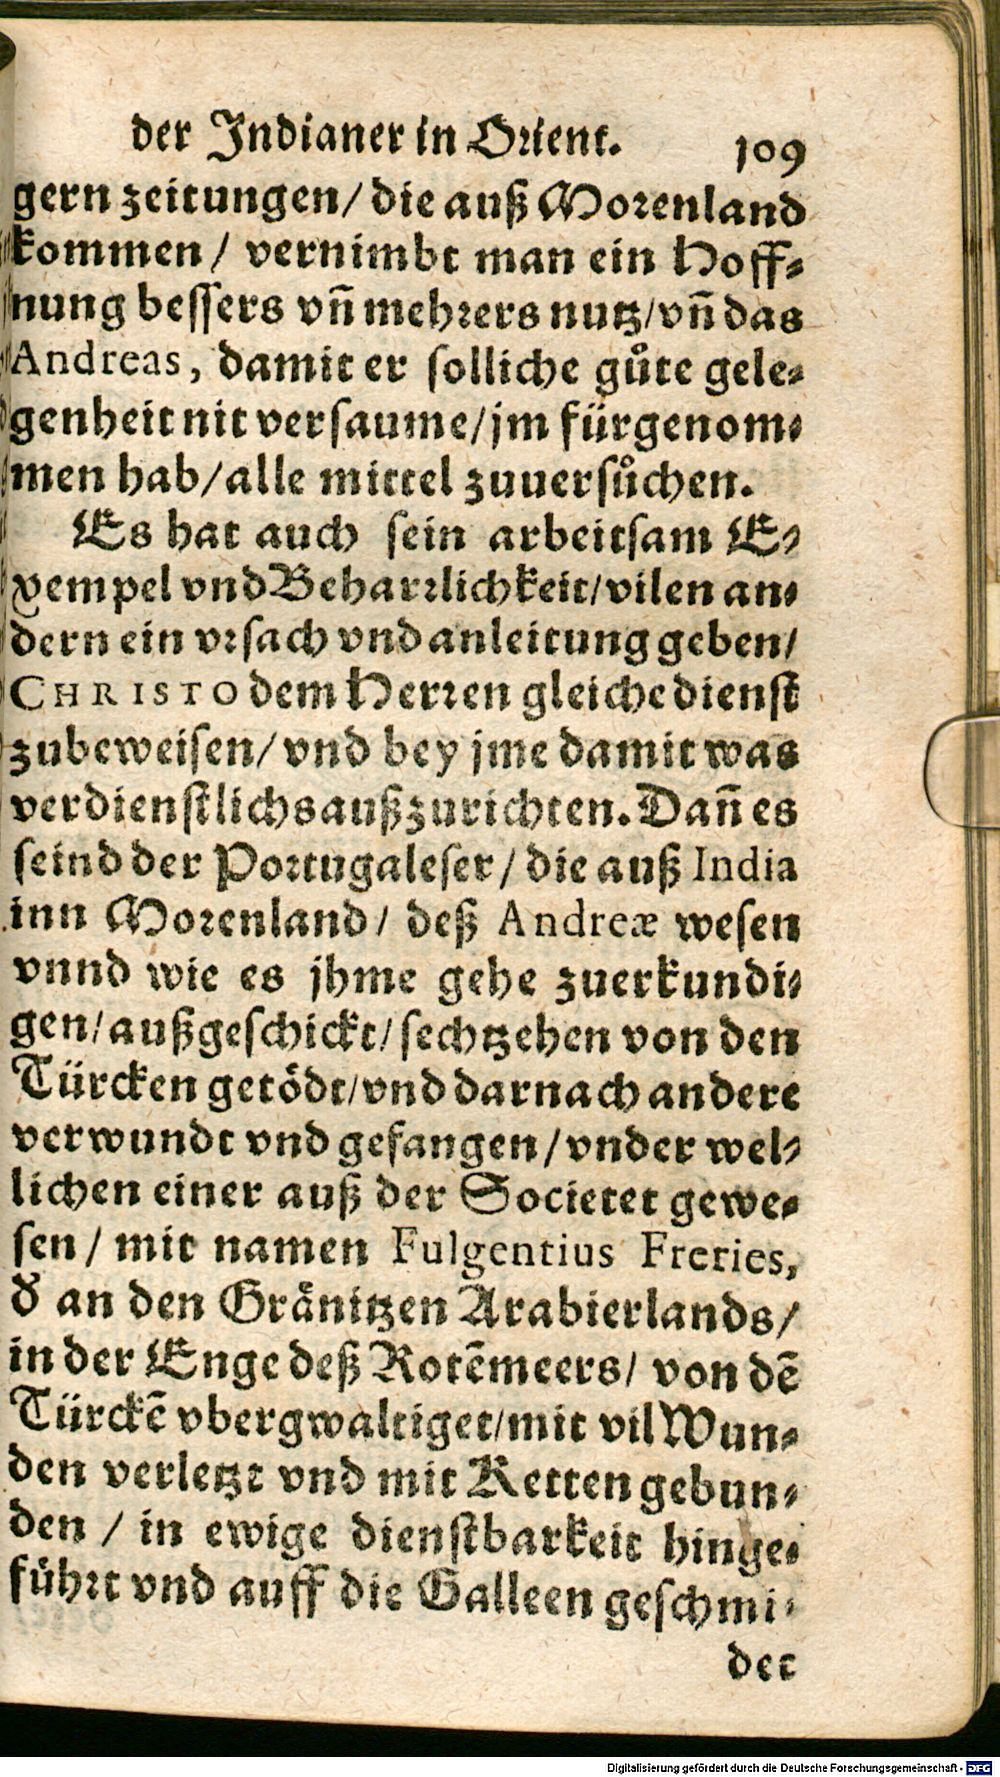 der Indianer in Orient. 109
gern zeitungen/ die auß Morenland
kommen/ vernimbt man ein Hoff-
nung bessers vñ mehrers nutz/vñ das
Andreas, damit er solliche gůte gele-
genheit nit versaume/jm fürgenom-
men hab/alle mittel zuuersůchen.
Es hat auch sein arbeitsam E-
xempel vnd Beharrlichkeit/vilen an-
dern ein vrsach vnd anleitung geben/
CHRISTO dem Herren gleiche dienst
zubeweisen/ vnd bey jme damit was
verdienstlichs außzurichten. Dañ es
seind der Portugaleser/ die auß India
inn Morenland/ deß Andreæ wesen
vnnd wie es jhme gehe zuerkundi-
gen/außgeschickt/sechtzehen von den
Türcken getödt/vnd darnach andere
verwundt vnd gefangen/vnder wel-
lichen einer auß der Societet gewe-
sen/ mit namen Fulgentius Freries,
d̕ an den Gränitzen Arabierlands/
in der Enge deß Rotēmeers/ von dē
Türckē vbergwaltiget/mit vil Wun-
den verletzt vnd mit Ketten gebun-
den/ in ewige dienstbarkeit hinge-
führt vnd auff die Galleen geschmi-
det
Digitalisierung gefördert durch die Deutsche Forschungsgemeinschaft - DFG